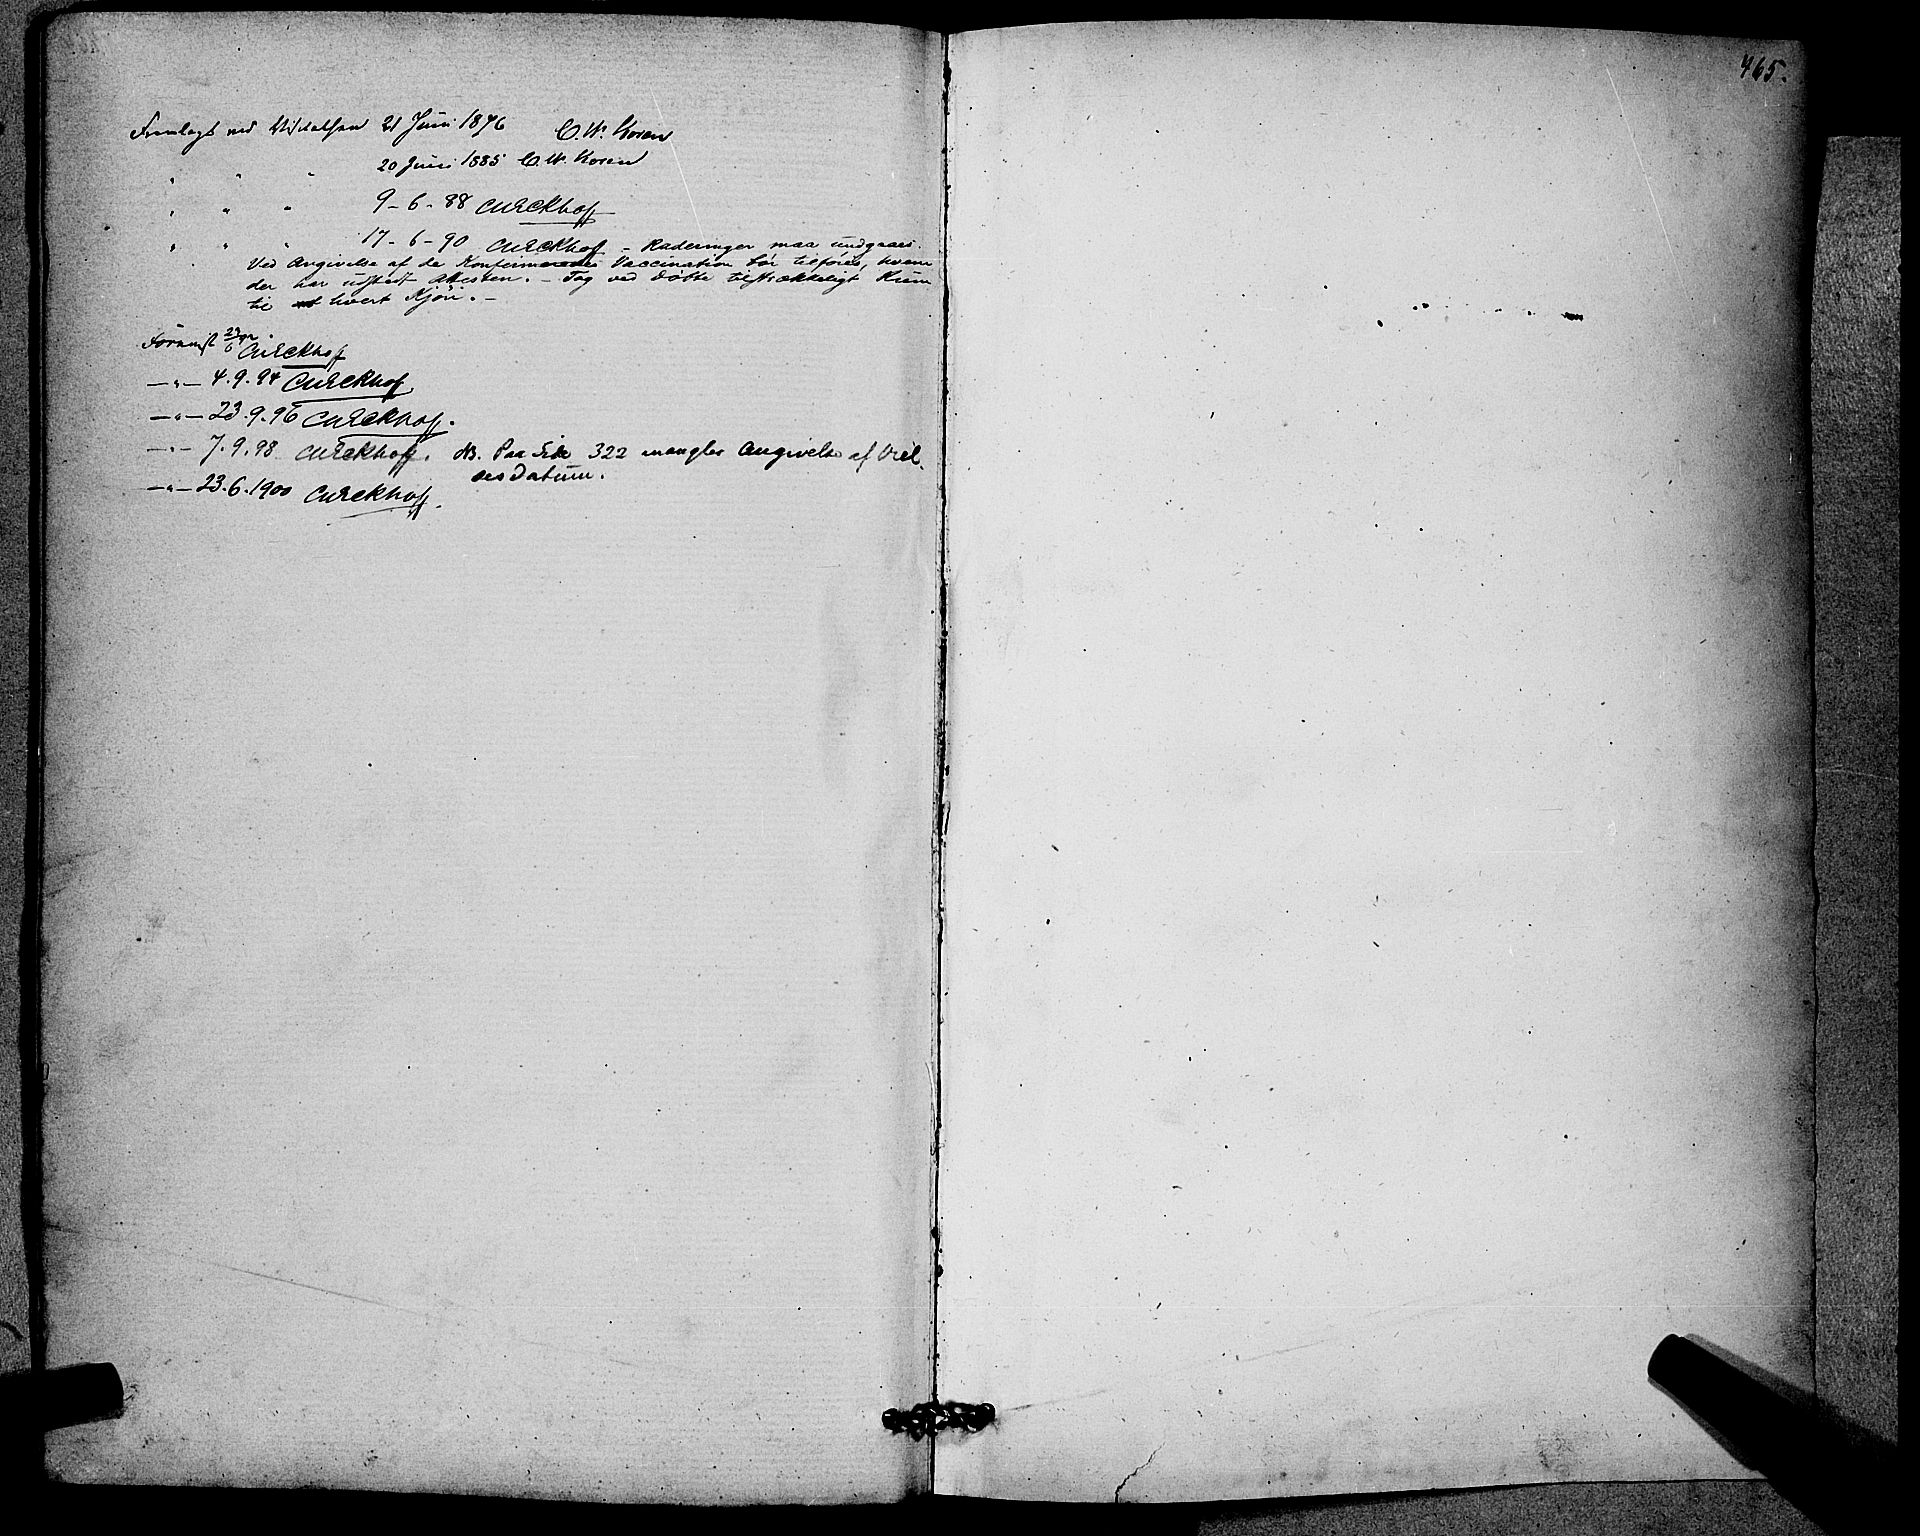 Fremlagt ved Visitatsen 21 Juni 1876 C. W. Koren
" " " 20 Juni 1885 C. W. Koren
" " " 9-6-88 CMEckhoff
" " " 17-6-90 CMEckhoff - Raderinger maa undgaaes.
Ved Angivelse af de Konfirmeredes Vaccination bør tilføies, hvem
der har udstedt Attesten. - Tag ved Døbte tilstrækkeligt Rum
til hvert Kjøn. -
Forevist CMEckhoff
-"- 4.9.94 CMEckhoff
-"- 23.9.96 CMEckhoff.
-"- 7.9.98 CMEckhoff. NB. Paa Side 322 mangler Angivelse af Viel
sesdatum.
-"- 23.6.1900 CMEckhoff.
465.